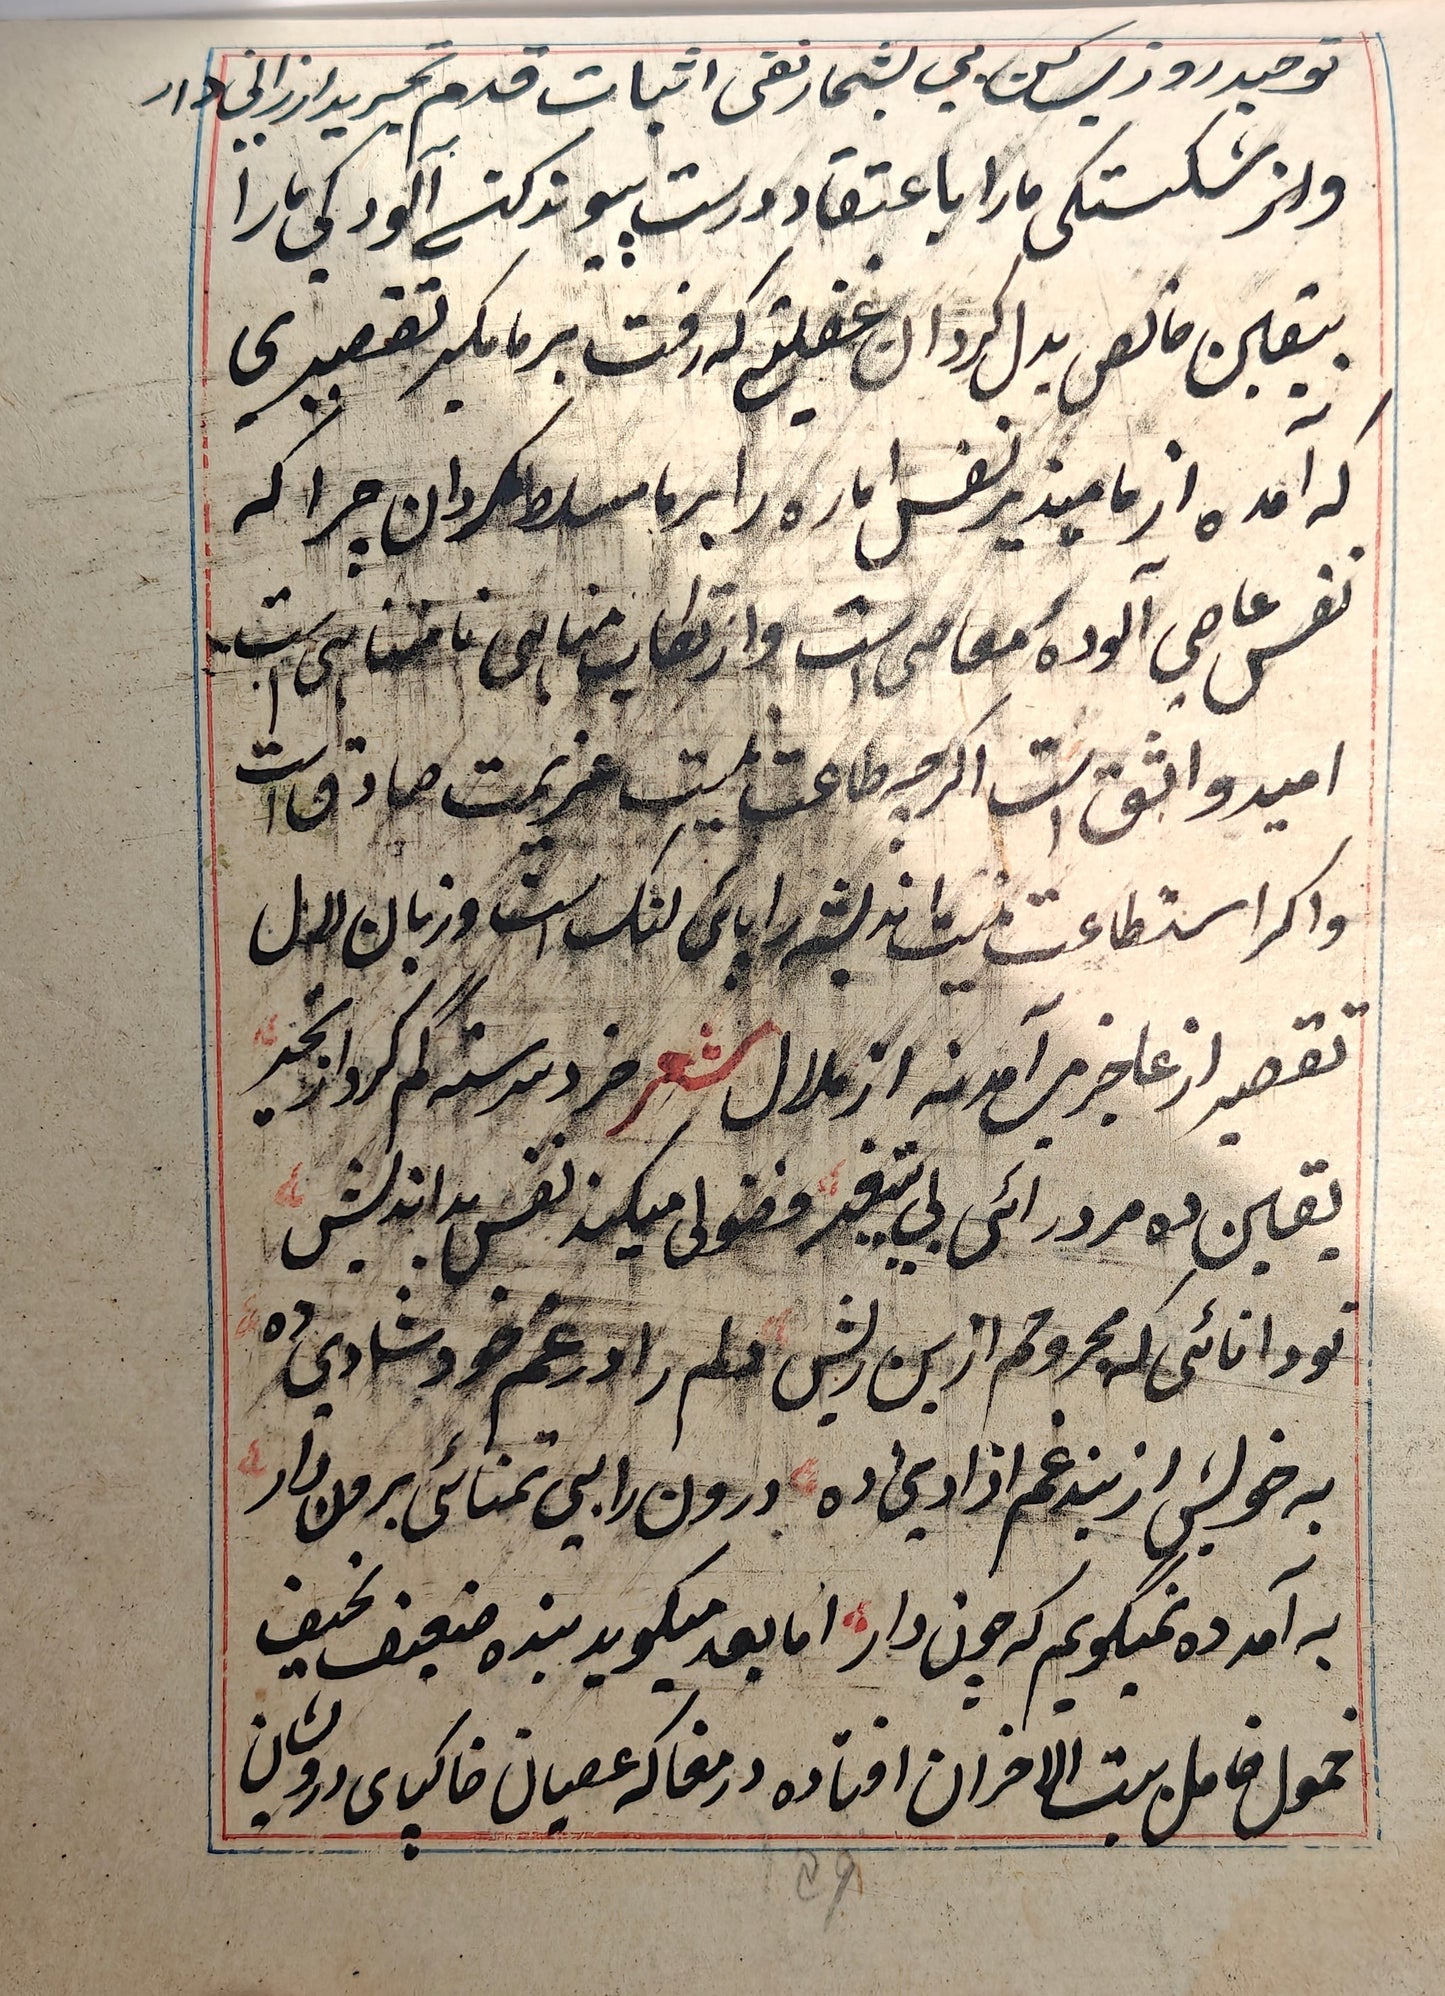 توحید روزی کن بی بشمار نفی اثبات قدم تجرید ارزانی دار
واز شکستکی مارا با عتقاد درست پیوند کن آلودکی مارا
بیقین خالص بدل کردان غفلتی که رفت بر ما مکیر تقصیری
که آمده از ما بپذیر نفس اماره را بر ما مسلط مکردان چرا که
نفس عاصی آلودهٔ معاصی است وارتکاب مناهی نامتناهی است
امید واثق است اکرچه طاعت نیست عزیمت صادق است
واکر استطاعت نیست اندیشه را پای لنک است وزبان لال
تقصیر از عاجز می آمد نه از ملال شعر خرد سررشته کم کرد از تحیر
یقین ده مرد رائی بی تغیر فضولی میکند نفس بد اندیش
تو دانائی که مجروحم ازین ریش دلم را در غم خود شادی ده
به خویش از بند غم ازادی ده درون را بی تمنائی برون دار
به آمد ده نمیکویم که چون دار اما بعد میکوید بنده ضعیف نحیف
خمول خامل بیت الاحزان افتاده در مغاکه عصیان خاکپای درویشان